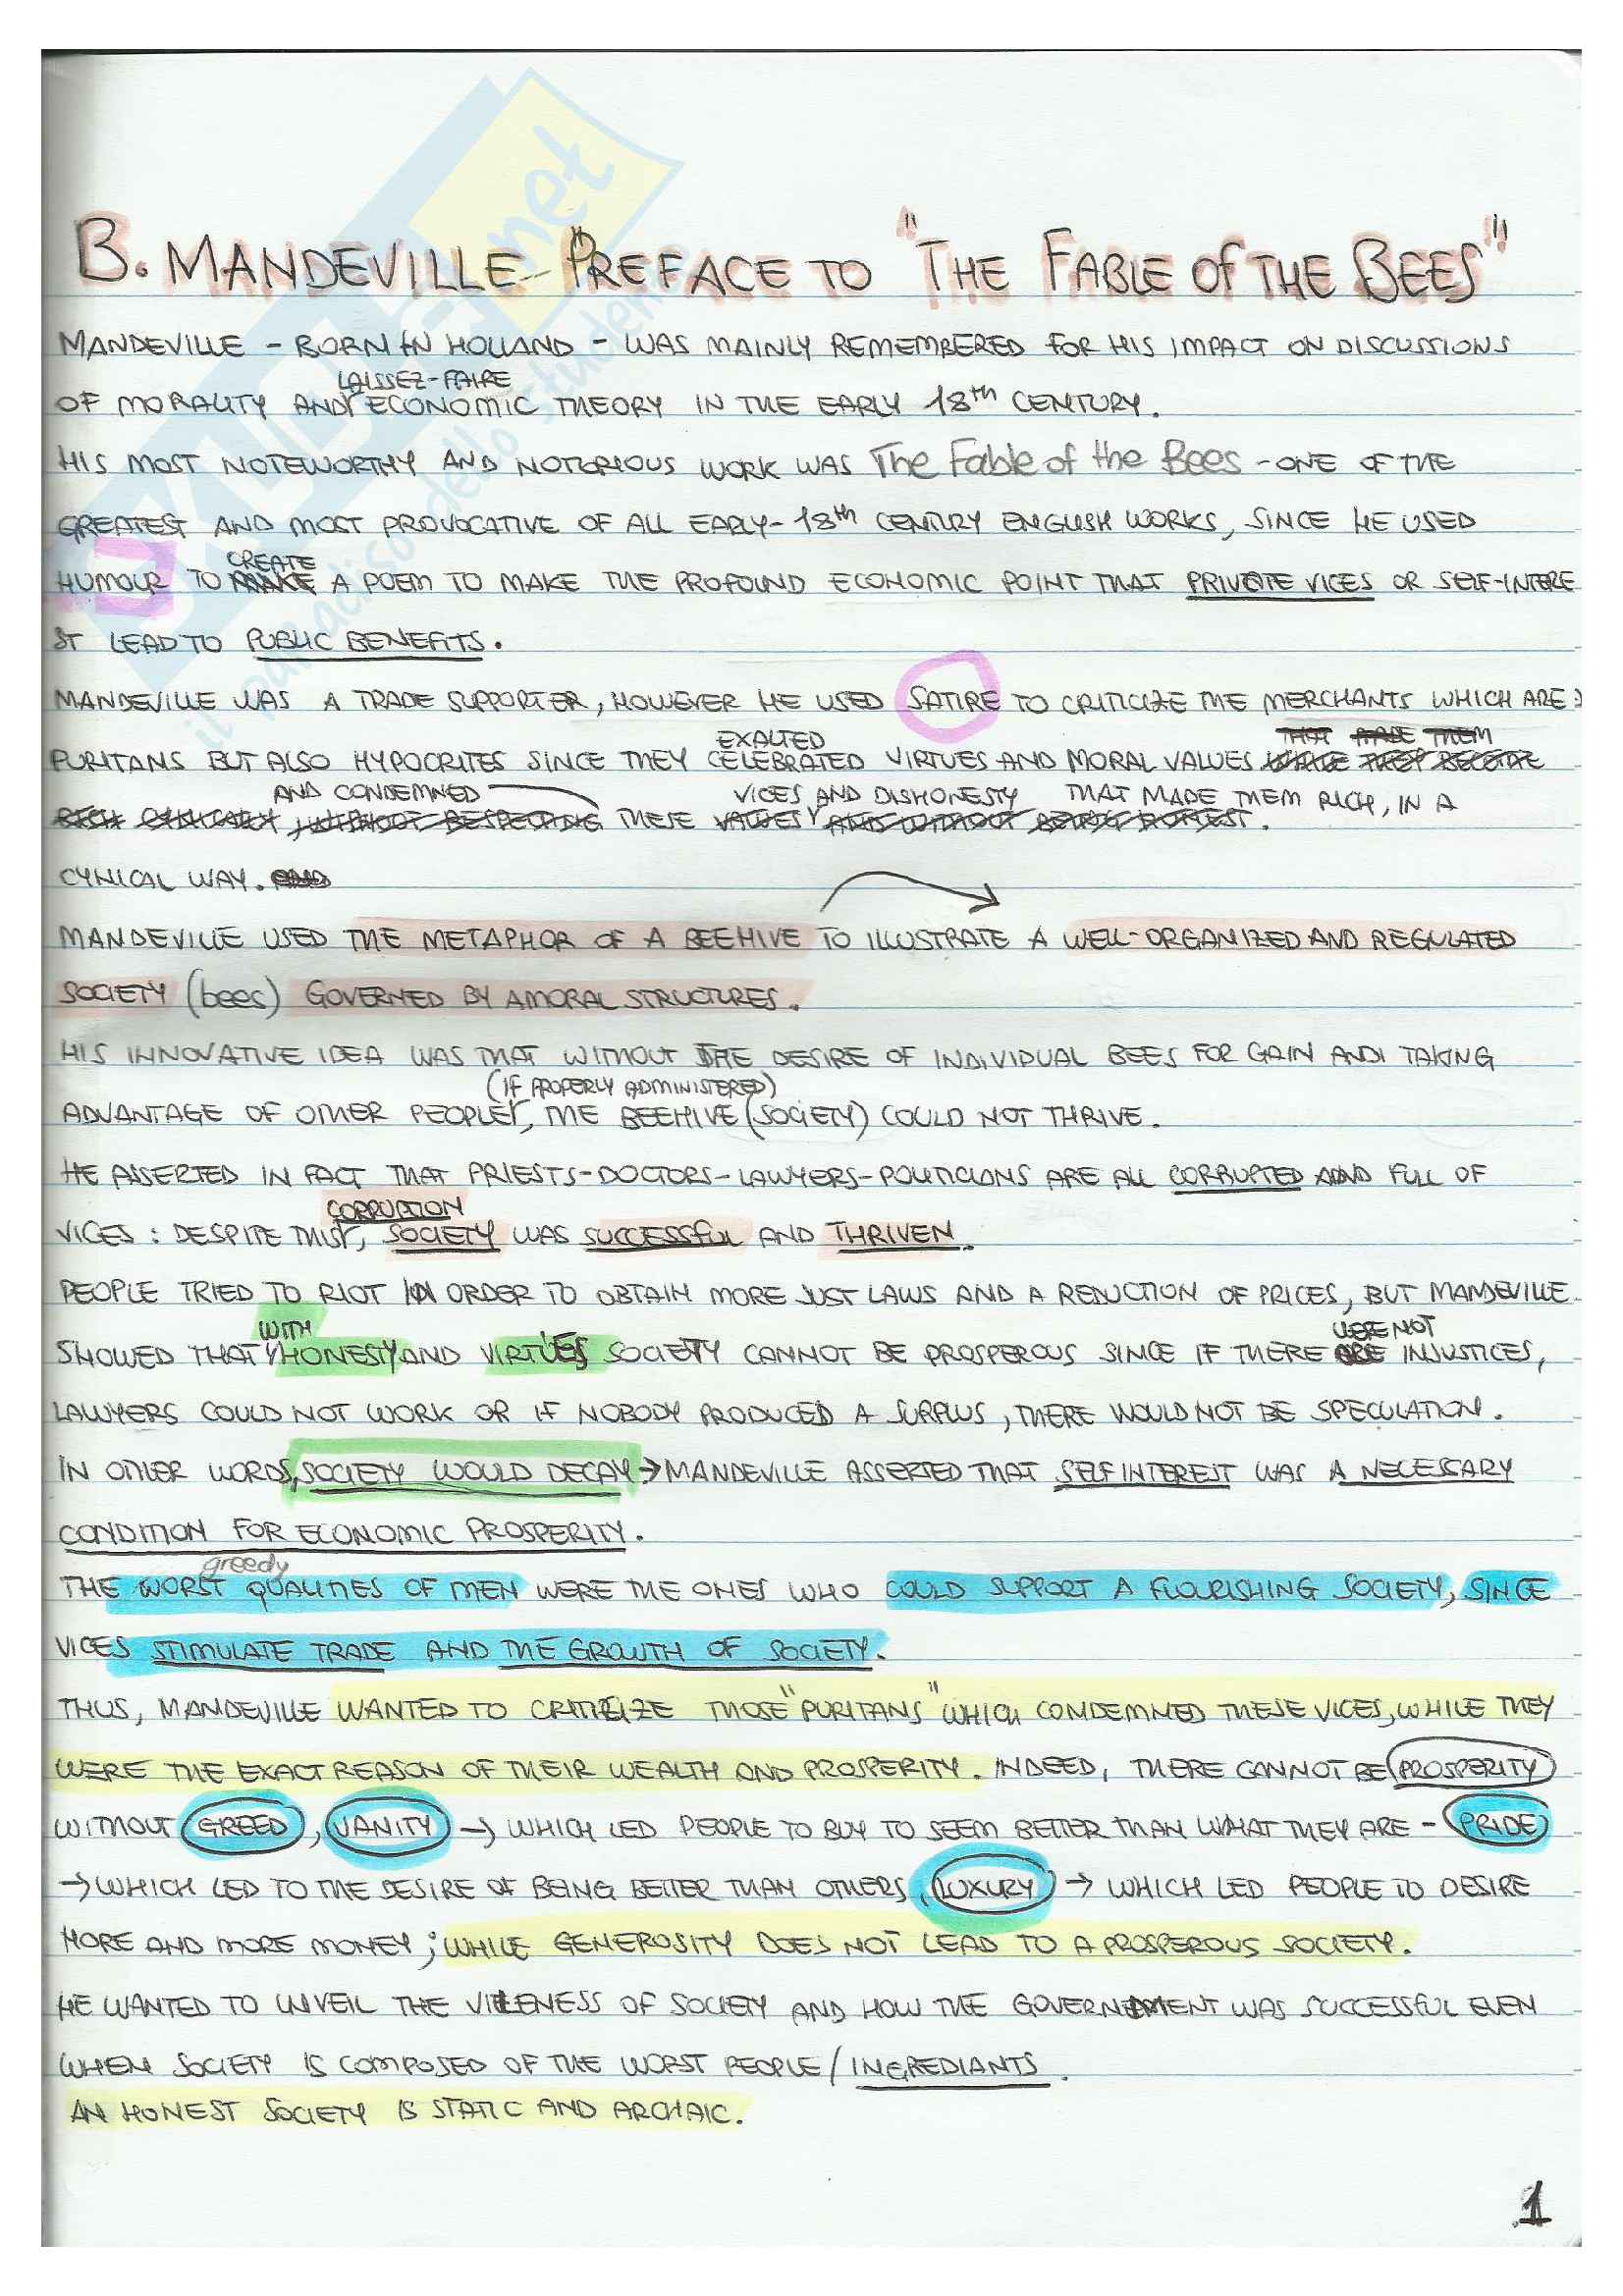 B. MANDEVILLE - PREFACE TO "THE FABLE OF THE BEES"
MANDEVILLE - BORN IN HOLLAND - WAS MAINLY REMEMBERED FOR HIS IMPACT ON DISCUSSIONS
LAISSEZ-FAIRE
OF MORALITY AND ECONOMIC THEORY IN THE EARLY 18th CENTURY.
HIS MOST NOTEWORTHY AND NOTORIOUS WORK WAS The Fable of the Bees - ONE OF THE
GREATEST AND MOST PROVOCATIVE OF ALL EARLY-18th CENTURY ENGLISH WORKS, SINCE HE USED
CREATE
HUMOUR TO MAKE A POEM TO MAKE THE PROFOUND ECONOMIC POINT THAT PRIVATE VICES OR SELF-INTERE
ST LEAD TO PUBLIC BENEFITS.
MANDEVILLE WAS A TRADE SUPPORTER, HOWEVER HE USED SATIRE TO CRITICIZE THE MERCHANTS WHICH ARE
EXALTED THAT MADE THEM
PURITANS BUT ALSO HYPOCRITES SINCE THEY CELEBRATED VIRTUES AND MORAL VALUES WHILE THEY BECOME
AND CONDEMNED VICES AND DISHONESTY THAT MADE THEM RICH, IN A
RICH WITHOUT RESPECTING THESE VALUES AND WITHOUT BEING HONEST.
CYNICAL WAY. AND
MANDEVILLE USED THE METAPHOR OF A BEEHIVE TO ILLUSTRATE A WELL-ORGANIZED AND REGULATED
SOCIETY (bees) GOVERNED BY AMORAL STRUCTURES.
HIS INNOVATIVE IDEA WAS THAT WITHOUT THE DESIRE OF INDIVIDUAL BEES FOR GAIN AND TAKING
(IF PROPERLY ADMINISTERED)
ADVANTAGE OF OTHER PEOPLE, THE BEEHIVE (SOCIETY) COULD NOT THRIVE.
HE ASSERTED IN FACT THAT PRIESTS-DOCTORS-LAWYERS-POLITICIANS ARE ALL CORRUPTED AND FULL OF
CORRUPTION
VICES: DESPITE THIS, SOCIETY WAS SUCCESSFUL AND THRIVEN.
PEOPLE TRIED TO RIOT IN ORDER TO OBTAIN MORE JUST LAWS AND A REDUCTION OF PRICES, BUT MANDEVILLE
WITH WERE NOT
SHOWED THAT HONESTY AND VIRTUES SOCIETY CANNOT BE PROSPEROUS SINCE IF THERE ARE INJUSTICES,
LAWYERS COULD NOT WORK OR IF NOBODY PRODUCED A SURPLUS, THERE WOULD NOT BE SPECULATION.
IN OTHER WORDS, SOCIETY WOULD DECAY → MANDEVILLE ASSERTED THAT SELF INTEREST WAS A NECESSARY
CONDITION FOR ECONOMIC PROSPERITY.
greedy
THE WORST QUALITIES OF MEN WERE THE ONES WHO COULD SUPPORT A FLOURISHING SOCIETY, SINCE
VICES STIMULATE TRADE AND THE GROWTH OF SOCIETY.
THUS, MANDEVILLE WANTED TO CRITICIZE THOSE "PURITANS" WHICH CONDEMNED THESE VICES, WHILE THEY
WERE THE EXACT REASON OF THEIR WEALTH AND PROSPERITY. INDEED, THERE CANNOT BE PROSPERITY
WITHOUT GREED, VANITY → WHICH LED PEOPLE TO BUY TO SEEM BETTER THAN WHAT THEY ARE - PRIDE
→ WHICH LED TO THE DESIRE OF BEING BETTER THAN OTHERS, LUXURY → WHICH LED PEOPLE TO DESIRE
MORE AND MORE MONEY; WHILE GENEROSITY DOES NOT LEAD TO A PROSPEROUS SOCIETY.
HE WANTED TO UNVEIL THE VILENESS OF SOCIETY AND HOW THE GOVERNMENT WAS SUCCESSFUL EVEN
WHEN SOCIETY IS COMPOSED OF THE WORST PEOPLE/INGREDIANTS.
AN HONEST SOCIETY IS STATIC AND ARCHAIC.
1